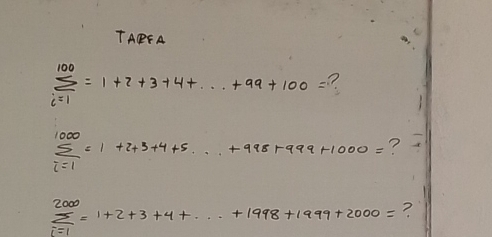 TAREA
100
∑ = 1+2+3+4+...+99+100 =?
i=1
1000
∑ = 1+2+3+4+5...+998+999+1000 = ?
i=1
2000
∑ = 1+2+3+4+...+1998+1999+2000 = ?
i=1